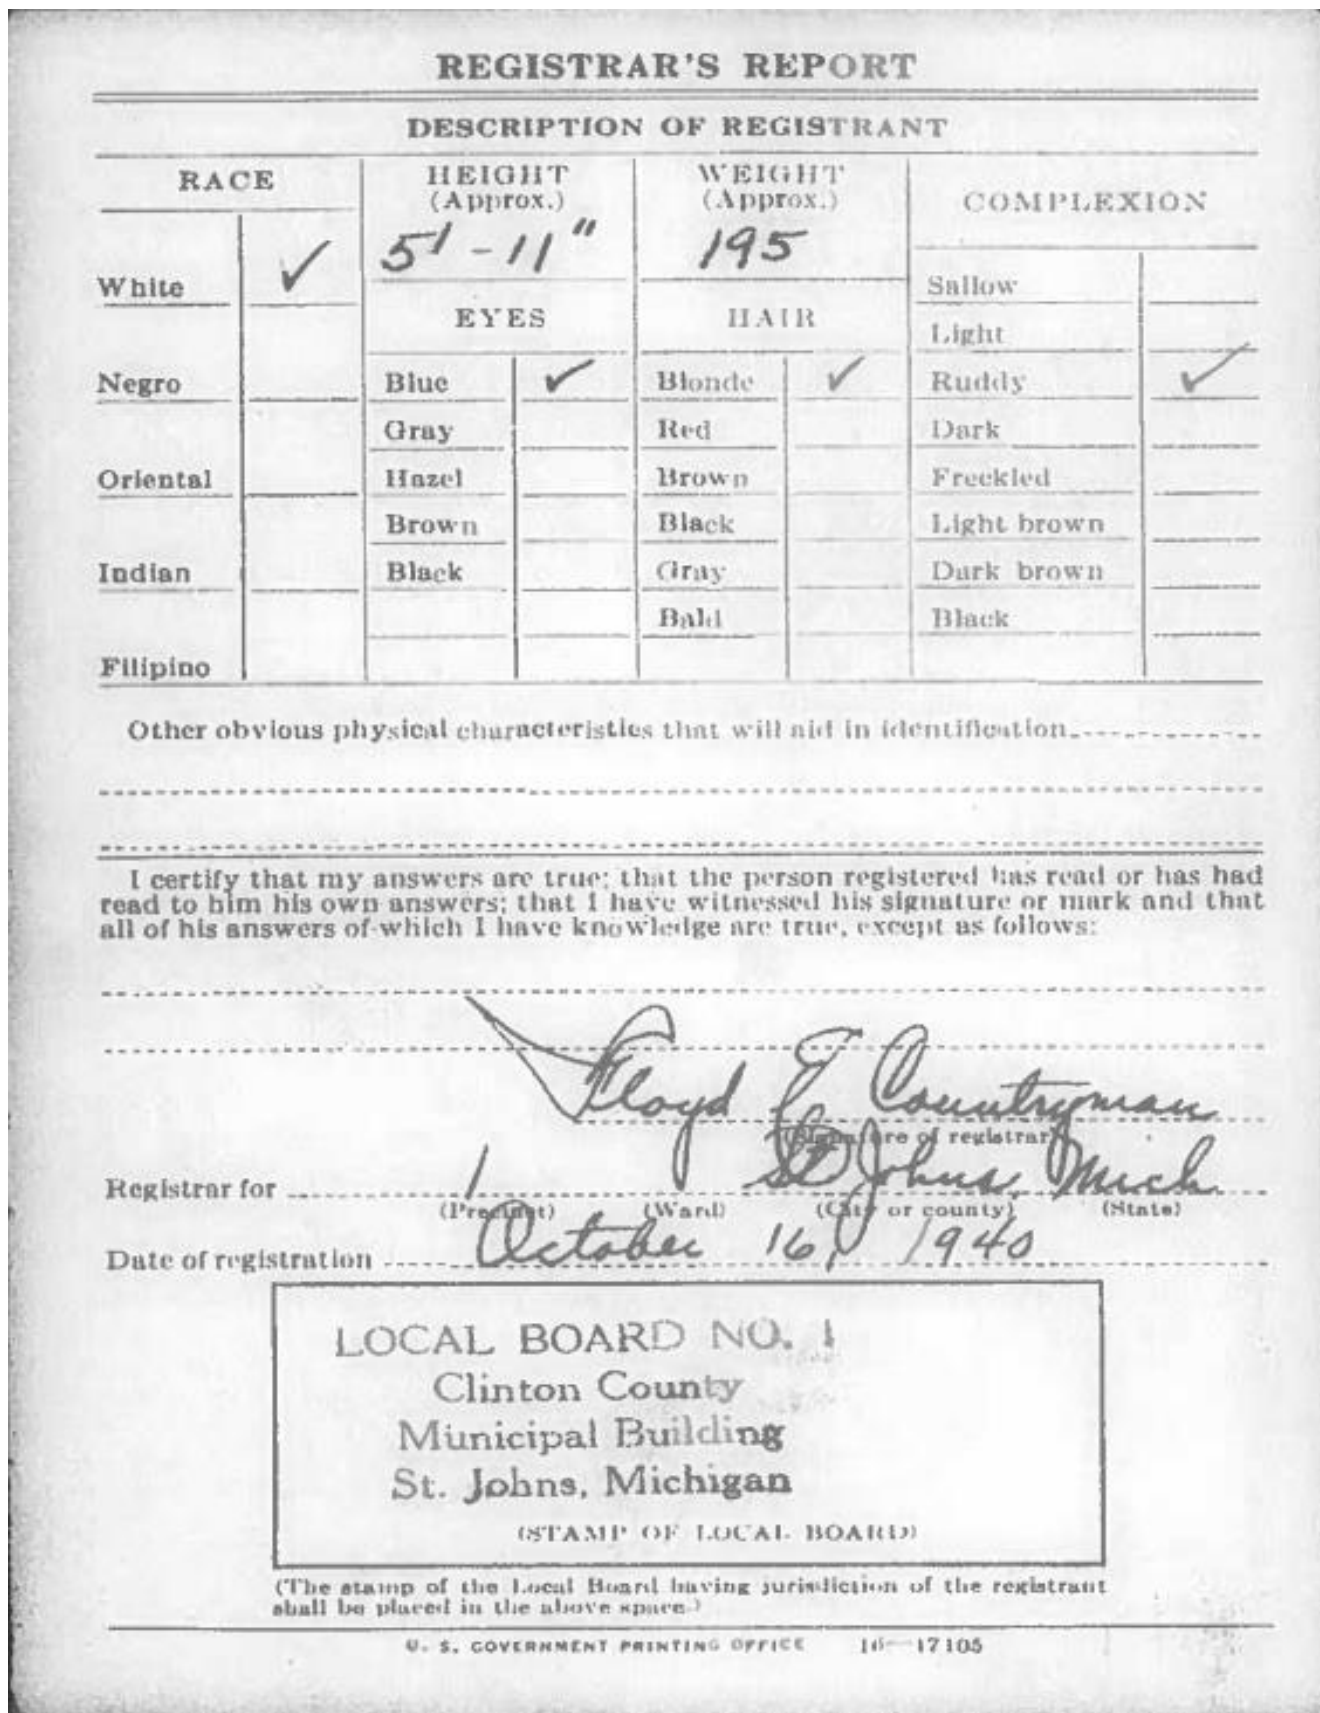 REGISTRAR'S REPORT
DESCRIPTION OF REGISTRANT
RACE
HEIGHT
(Approx.)
5' - 11"
WEIGHT
(Approx.)
195
COMPLEXION
White ✓
Negro
Oriental
Indian
Filipino
EYES
Blue ✓
Gray
Hazel
Brown
Black
HAIR
Blonde ✓
Red
Brown
Black
Gray
Bald
Sallow
Light
Ruddy ✓
Dark
Freckled
Light brown
Dark brown
Black
Other obvious physical characteristics that will aid in identification
I certify that my answers are true; that the person registered has read or has had
read to him his own answers; that I have witnessed his signature or mark and that
all of his answers of which I have knowledge are true, except as follows:
Floyd E Countryman
(Signature of registrar)
Registrar for 1 St Johns, Mich
(Precinct) (Ward) (City or county) (State)
Date of registration October 16, 1940
LOCAL BOARD NO. 1
Clinton County
Municipal Building
St. Johns, Michigan
(STAMP OF LOCAL BOARD)
(The stamp of the Local Board having jurisdiction of the registrant
shall be placed in the above space.)
U. S. GOVERNMENT PRINTING OFFICE 16—17105